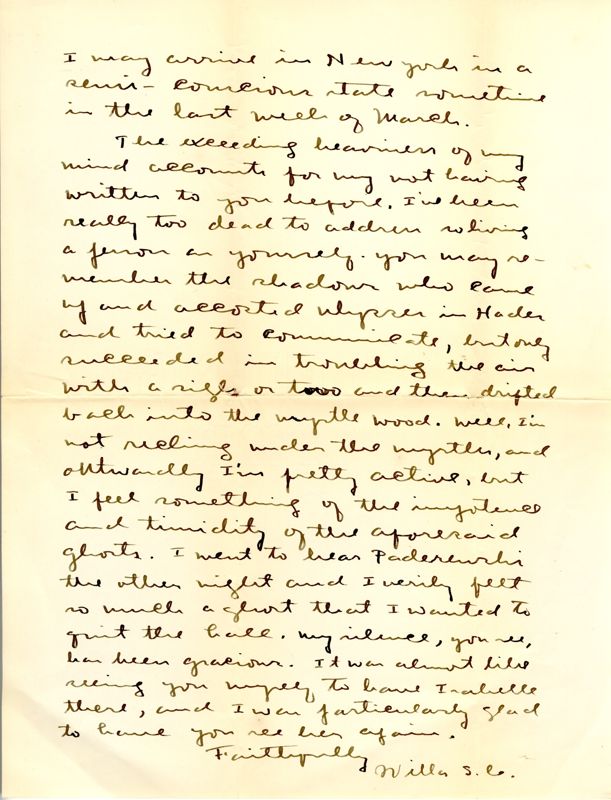 I may arrive in New york in a
semi- conscious state sometime
in the last week of March.
The exceeding heaviness of my
mind accounts for my not having
written to you before. I've been
really too dead to address so living
a person as yourself. you may re-
member the shadows who came
up and accosted Ulysses in Hades
and tried to communicate, but only
succeeded in troubling the air
with a sigh or two and then drifted
back into the myrtle wood. Well, I'm
not reclining under the myrtles, and
outwardly I'm pretty active, but
I feel something of the impotence
and timidity of the aforesaid
ghosts. I went to hear Paderewski
the other night and I verily felt
so much a ghost that I wanted to
quit the hall. My silence, you see,
has been gracious. It was almost like
seeing you myself, to have Isabelle
there, and I was particularly glad
to have you see her again.
Faithfully
Willa S. C.